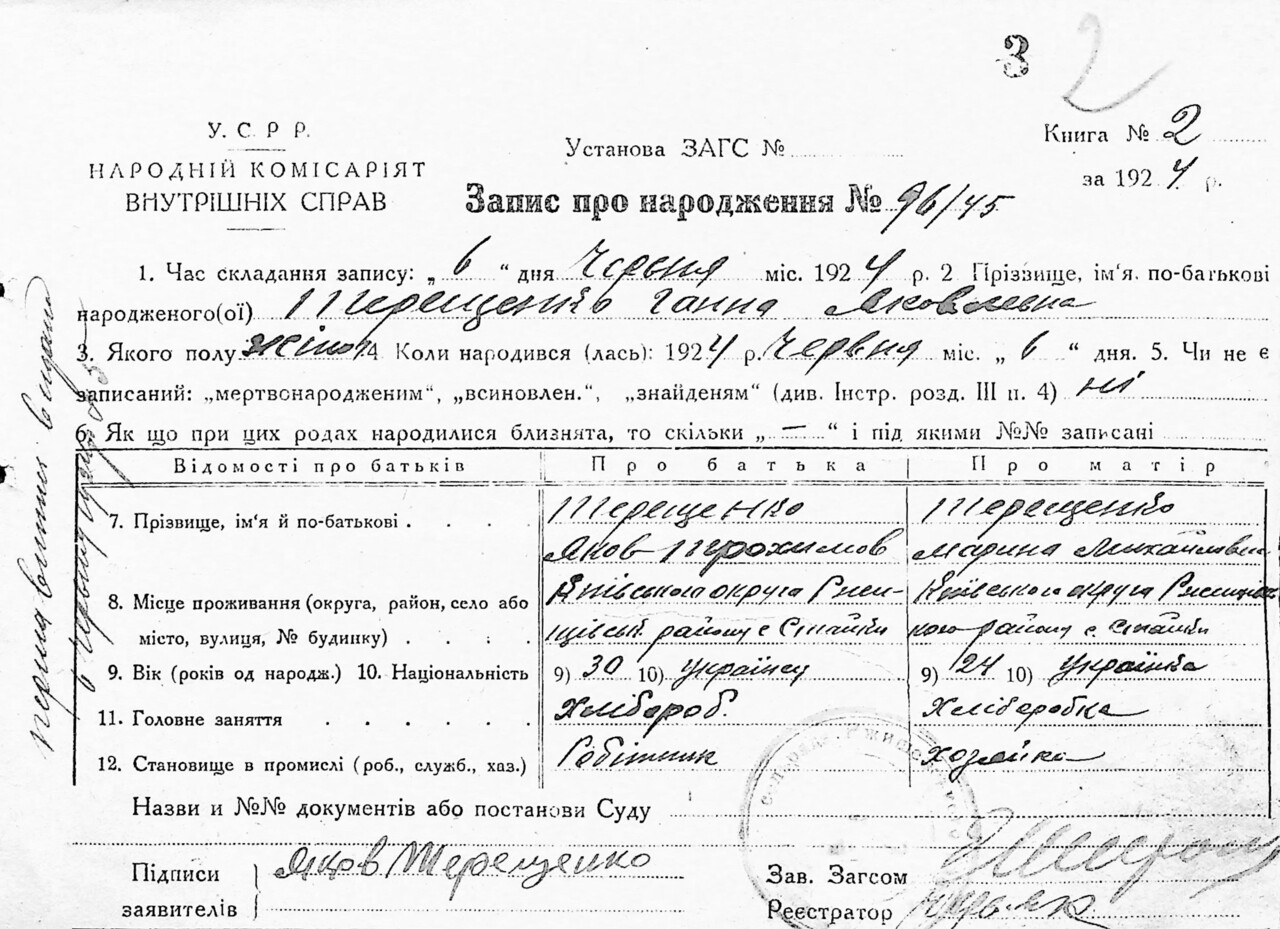 3 2
У. С. Р. Р.
НАРОДНІЙ КОМІСАРІЯТ
ВНУТРІШНІХ СПРАВ
Установа ЗАГС №
Книга № 2
за 1924 р.
Запис про народження № 96/45
1. Час складання запису: „ 6 “ дня Червня міс. 1924 р. 2 Прізвище, ім'я, по-батькові
народженого(ої) Терещенко Ганна Яковлевна
3. Якого полу жіноч 4 Коли народився (лась): 1924 р. Червня міс. „ 6 “ дня. 5. Чи не є
записаний: „мертвонародженим“, „всиновлен.“, „знайденям“ (див. Інстр. розд. III п. 4) ні
6. Як що при цих родах народилися близнята, то скільки „ — “ і під якими №№ записані
Відомості про батьків Про батька Про матір
7. Прізвище, ім'я й по-батькові Терещенко Терещенко
Яков Трохимов Марина Михайловна
8. Місце проживання (округа, район, село або Київського округа Ржи- Київського округа Ржищівсь-
місто, вулиця, № будинку) щівськ. району с Стайки кого району с. Стайки
9. Вік (років од народж.) 10. Національність 9) 30 10) Українец 9) 24 10) Українка
11. Головне заняття Хлібороб. Хліборобка
12. Становище в промислі (роб., служб., хаз.) Робітник Хозяйка
Назви и №№ документів або постанови Суду
Підписи Яков Терещенко
заявителів
Зав. Загсом
Реєстратор
первая витяг видано
6 червня 1924 р.